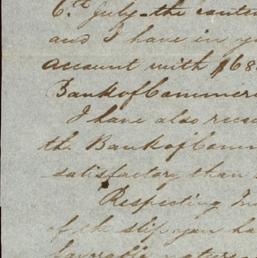 6th July the conten
and I have in yo
account with $68
Bank of Commerc
I have also rece
the Bank of Comm
satisfactory than
Respecting In
of the slip you ha
favorable